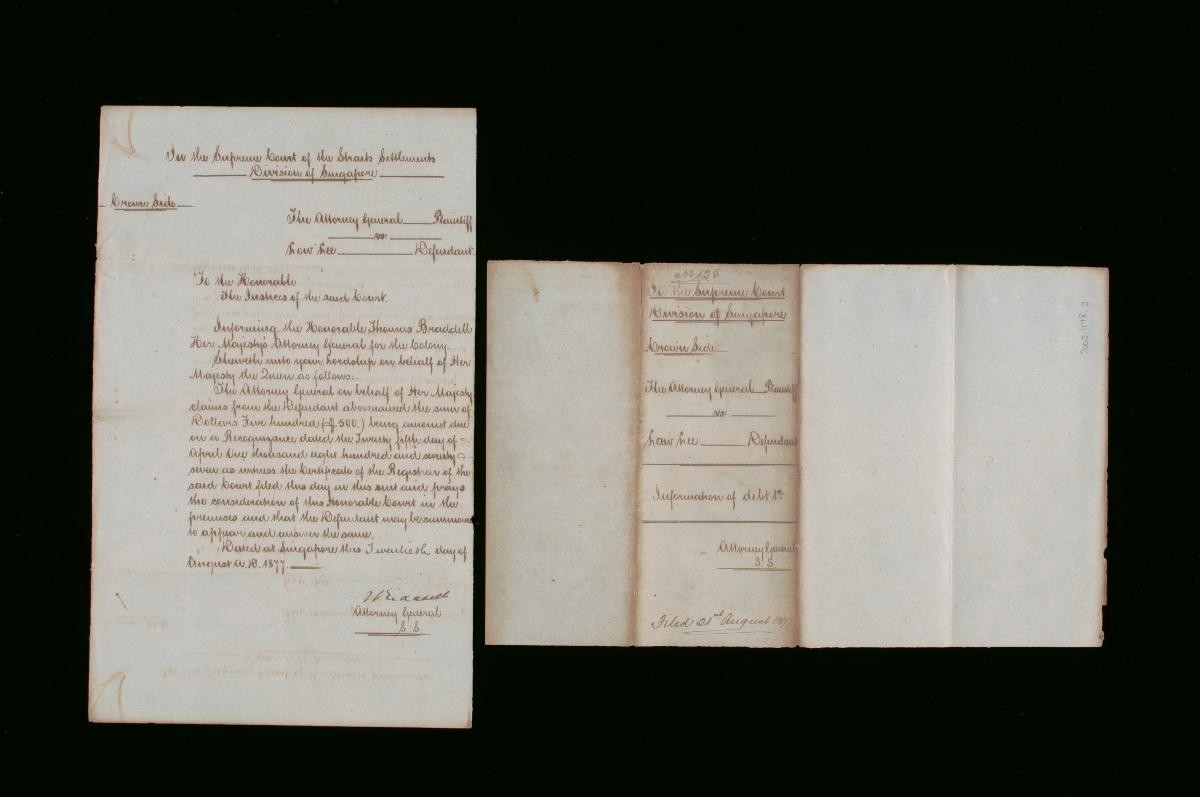 In the Supreme Court of the Straits Settlements
Division of Singapore
Crown Side
The Attorney General Plaintiff
vs
Low Lee Defendant
To the Honorable
The Justices of the said Court.
Informing the Honorable Thomas Braddell
Her Majesty's Attorney General for the Colony.
Sheweth unto your Lordship on behalf of Her
Majesty the Queen as follows:-
The Attorney General on behalf of Her Majesty
claims from the Defendant abovenamed the sum of
Dollars Five hundred ($500.) being amount due
on a Recognizance dated the Twenty fifth day of
April One thousand eight hundred and seventy
seven as witness the Certificate of the Registrar of the
said Court filed this day in this suit and prays
the consideration of this Honorable Court in the
premises and that the Defendant may be summoned
to appear and answer the same.
Dated at Singapore this Twentieth day of
August A.D. 1877.
T Braddell
Attorney General
S.S.
No 125
In the Supreme Court
Division of Singapore
Crown Side
The Attorney General Plaintiff
vs
Low Lee Defendant
Information of debt &c
Attorney General
S.S.
Filed 21st August 1877